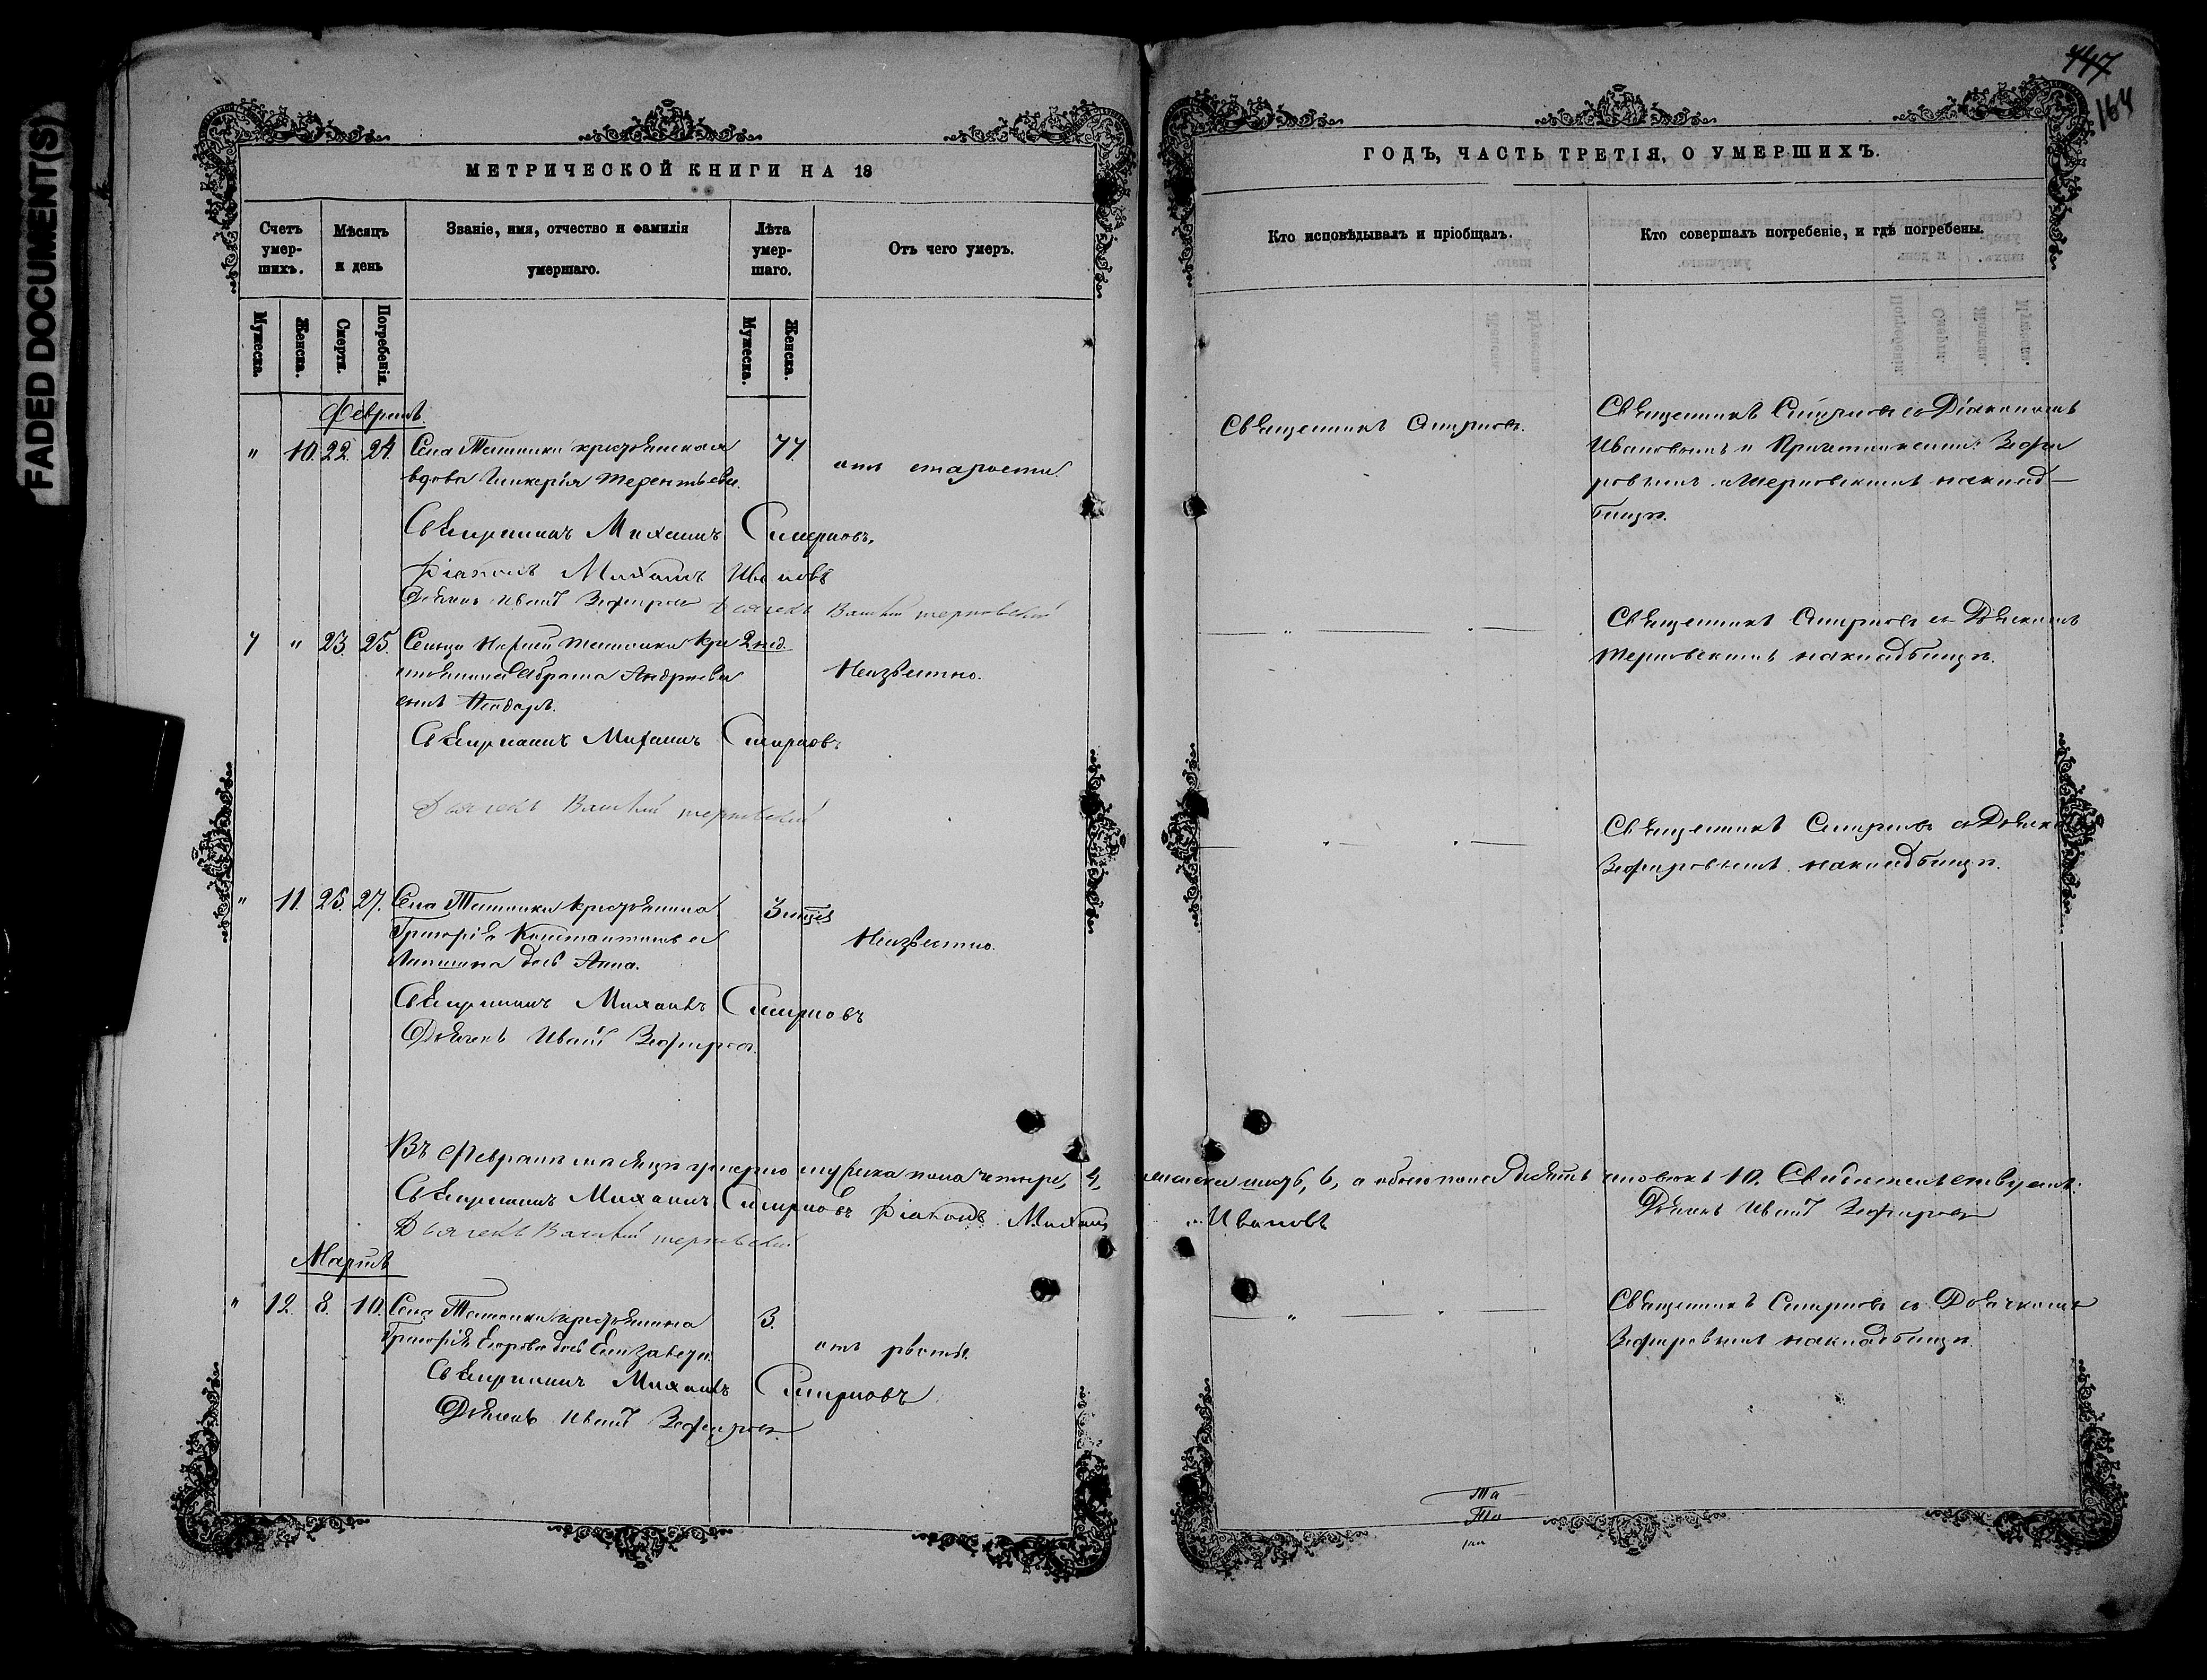 FADED DOCUMENT(S)
МЕТРИЧЕСКОЙ КНИГИ НА 18
Счетъ умер-шихъ.
Мѣсяцъ и день
Званіе, имя, отчество и фамилія умершаго.
Лѣта умер-шаго.
Отъ чего умеръ.
Мужеска.
Женска.
Смерти.
Погребенія.
Мужеска.
Женска.
Февраль
" 10. 22. 24. Села крестьянская 77.
вдова Гликерія Терентьева. отъ старости.
Священникъ Михаилъ Смирновъ,
Діаконъ Михаилъ Ивановъ
Дьячекъ Иванъ Зефировъ Дьячекъ Василій Терновскій
7 " 23. 25. Сельца кре 2 нед.
стьянина Абрама Андреева Неизвѣстно.
сынъ
Священникъ Михаилъ Смирновъ
Дьячекъ Василій Терновскій
" 11. 25. 27. Села крестьянина 3 мѣс
Григорія Константинова Неизвѣстно.
дочь Анна.
Священникъ Михаилъ Смирновъ
Дьячекъ Иванъ Зефировъ.
Въ Февралѣ мѣсяцѣ умерло мужеска пола четыре, 4,
Священникъ Михаилъ Смирновъ Діаконъ Михаилъ
Дьячекъ Василій Терновскій
Мартъ
" 12. 8. 10. Села крестьянина 3.
Григорія Егорова дочь Елизавета. отъ рвоты.
Священникъ Михаилъ Смирновъ
Дьячекъ Иванъ Зефировъ.
447
164
ГОДЪ, ЧАСТЬ ТРЕТІЯ, О УМЕРШИХЪ.
Кто исповѣдывалъ и пріобщалъ.
Кто совершалъ погребеніе, и гдѣ погребены.
Священникъ Смирновъ.
Священникъ Смирновъ съ Діакономъ
Ивановымъ и Причетниками: Зефи
ровымъ и Терновскимъ на клад-
бищѣ.
" Священникъ Смирновъ съ Дьячкомъ
Терновскимъ на кладбищѣ.
" Священникъ Смирновъ съ Дьячко
Зефировымъ на кладбищѣ.
женска шесть, 6, а обоего пола десять человѣкъ 10. Свидѣтельствуемъ:
Ивановъ Дьячекъ Иванъ Зефировъ
" Священникъ Смирновъ съ Дьячкомъ
Зефировымъ на кладбищѣ.
Та